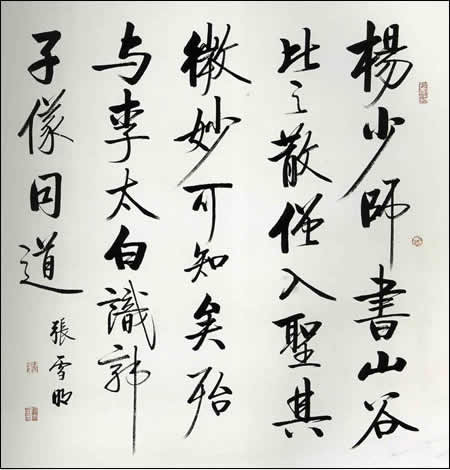 楊少師書山谷
比之散僧入聖其
微妙可知矣殆
与李太白識郭
子儀同道
張雪明